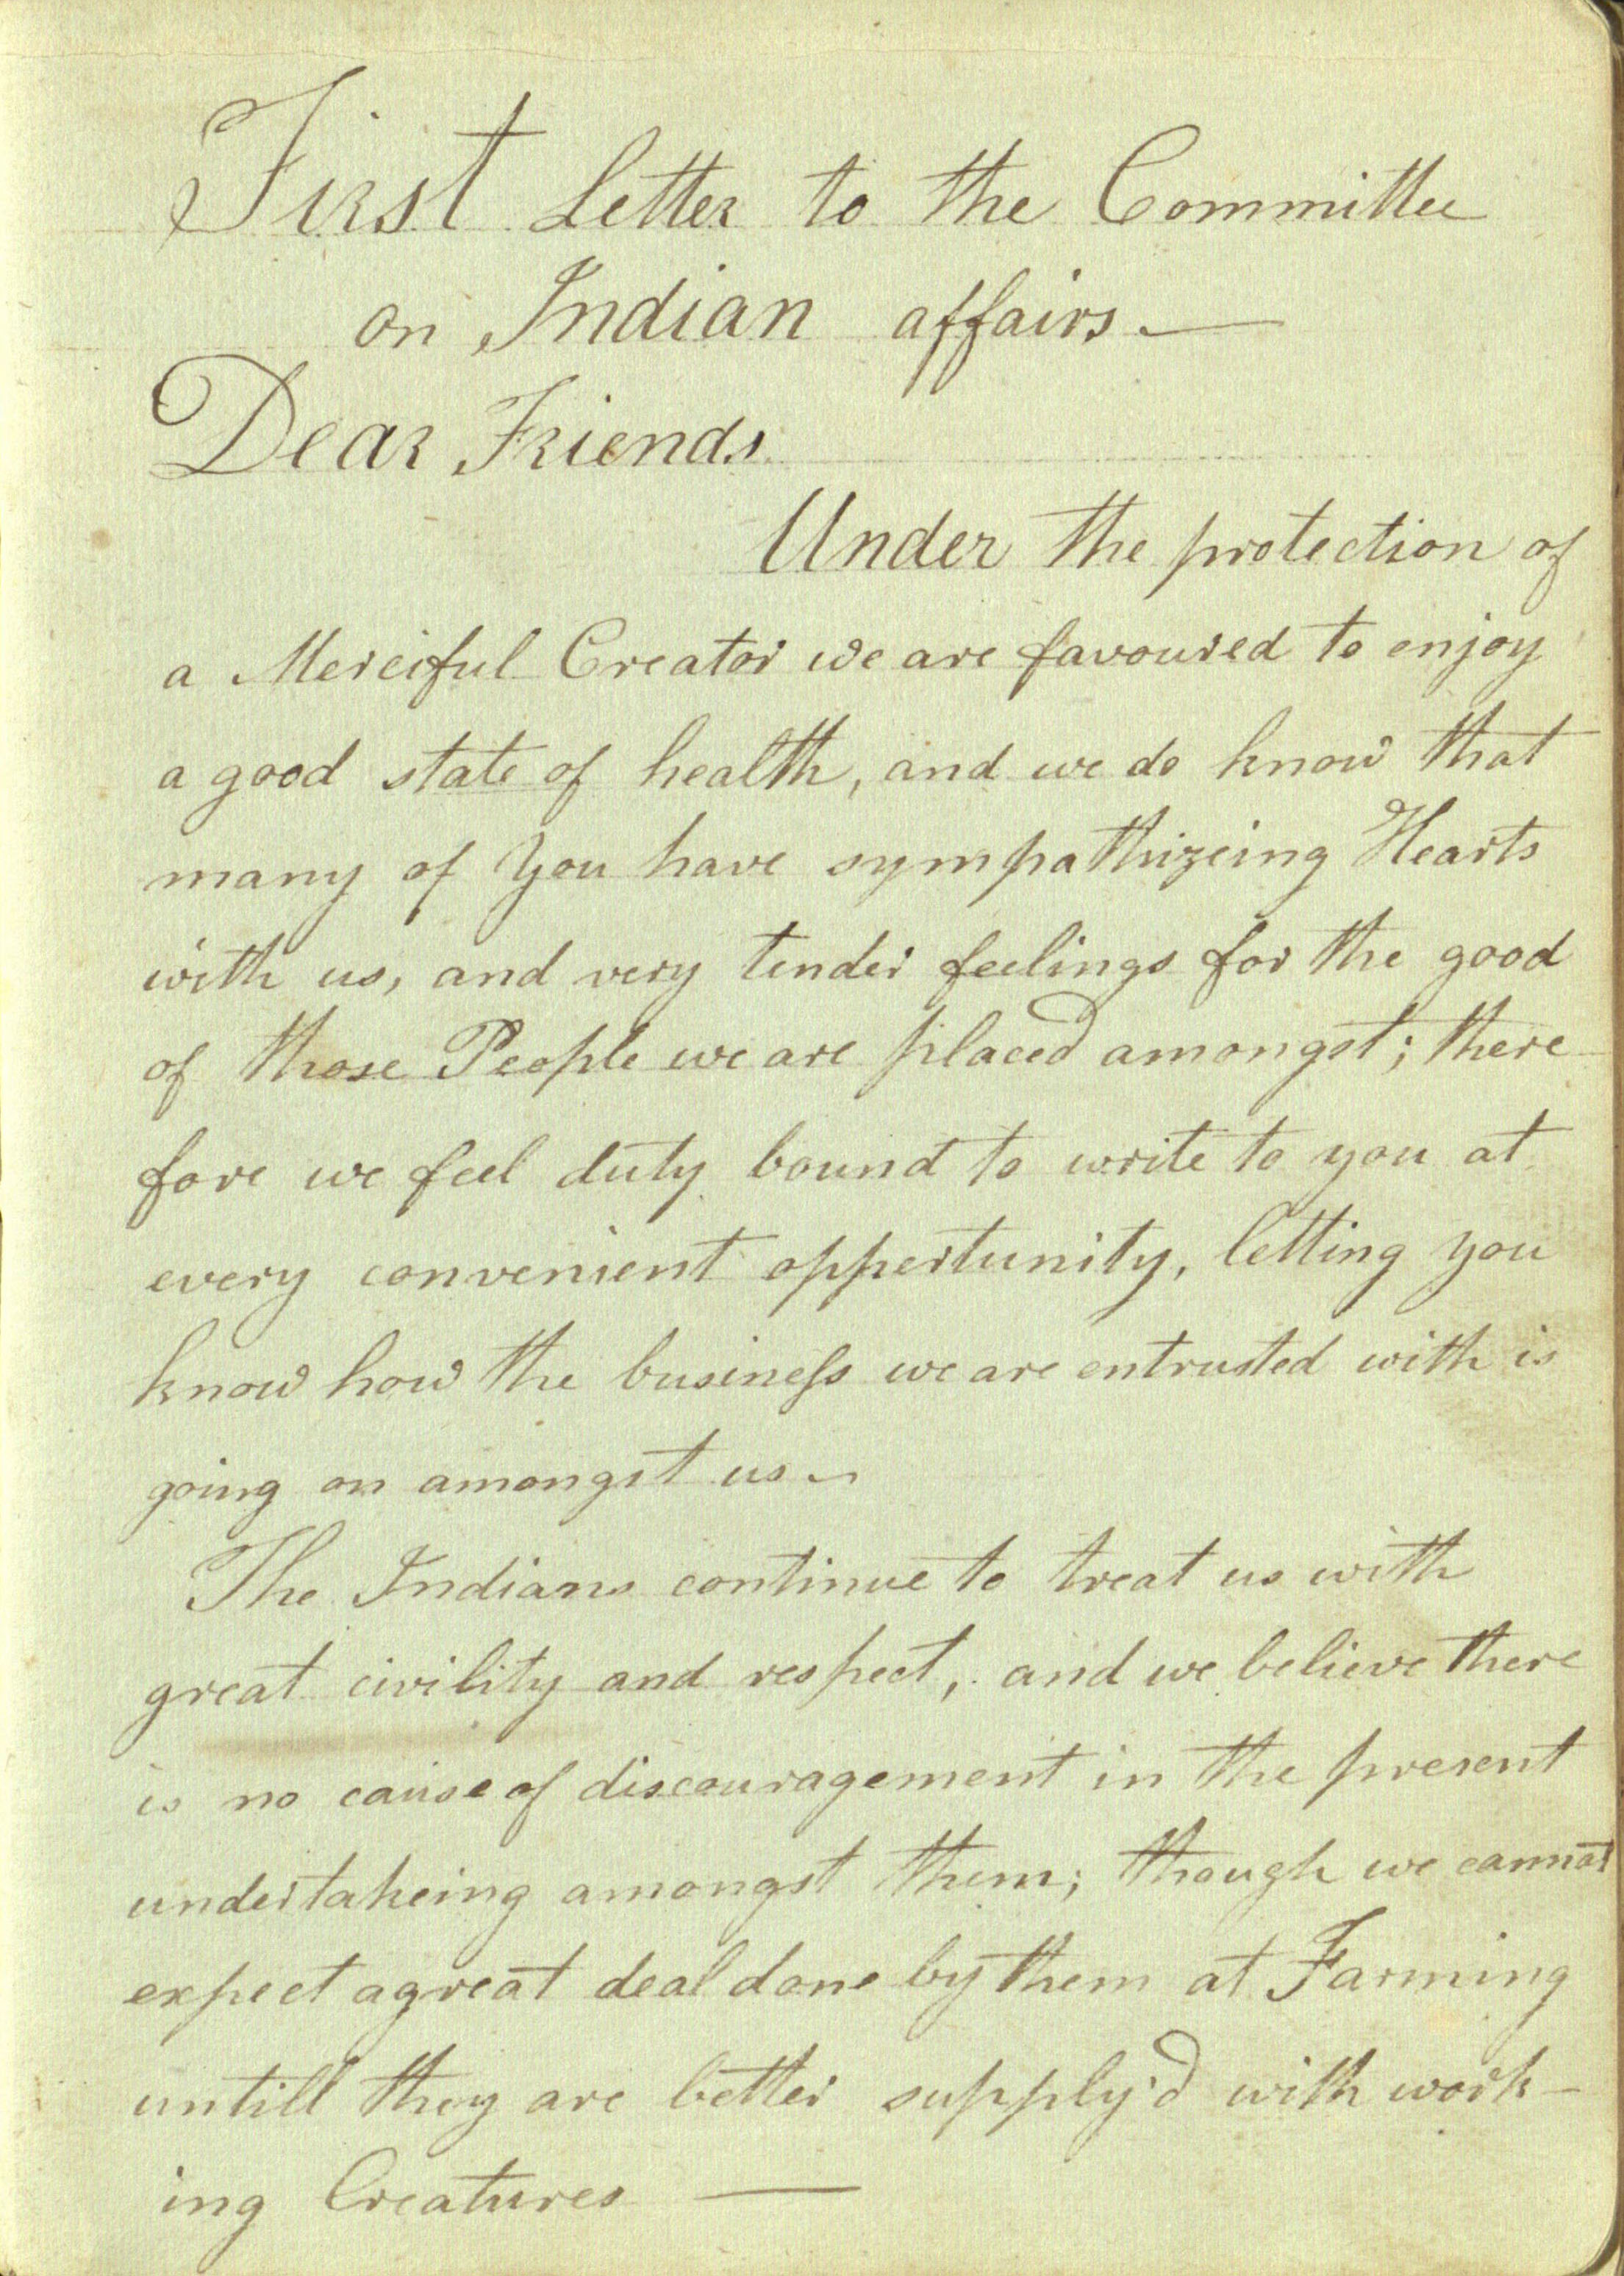 First Letter to the Committee
on Indian affairs.—
Dear Friends
Under the protection of
a Merciful Creator we are favoured to enjoy
a good state of health, and we do know that
many of You have sympathizeing Hearts
with us, and very tender feelings for the good
of those People we are placed amongst; there
fore we feel duty bound to write to you at
every convenient oppertunity, letting you
know how the business we are entrusted with is
going on amongst us~
The Indians continue to treat us with
great civility and respect, and we believe there
is no cause of discouragement in the present
undertakeing amongst them; though we cannot
expect a great deal done by them at Farming
untill they are better supply'd with work-
ing Creatures —